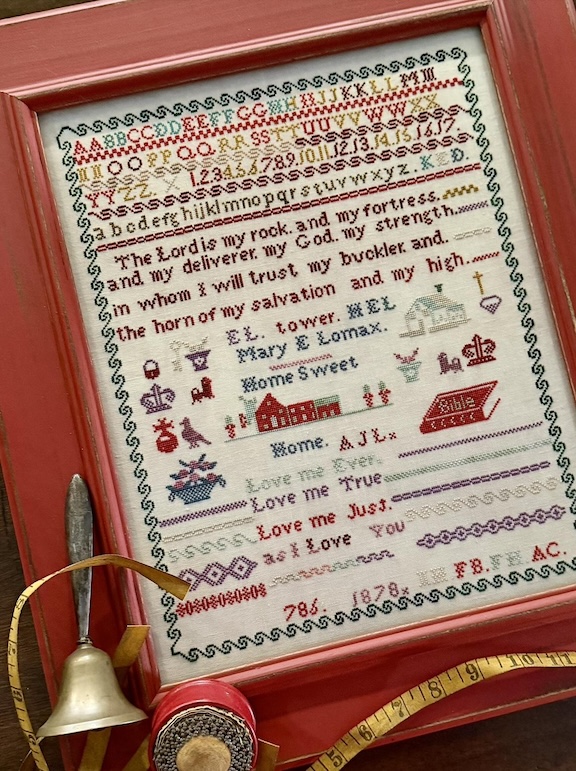 AABBCCDDEEFFGGHHIIJJKKLLMM
NNOOPPQQRRSSTTUUVVWWXX
YYZZ. 1.2.3.4.5.6.7.8.9.10.11.12.13.14.15.16.17.
a b c d e f g h i j k l m n o p q r s t u v w x y z. KED.
The Lord is my rock, and my fortress,
and my deliverer, my God, my strength,
in whom I will trust my buckler, and.
the horn of my salvation and my high.
EL. tower. HEL
Mary E Lomax.
Home Sweet
Bible
Home. AJL.
Love me Ever.
Love me True
Love me Just.
as I Love You
786. 1878 FB. FH AC.
7 8 9 10 11
6
5